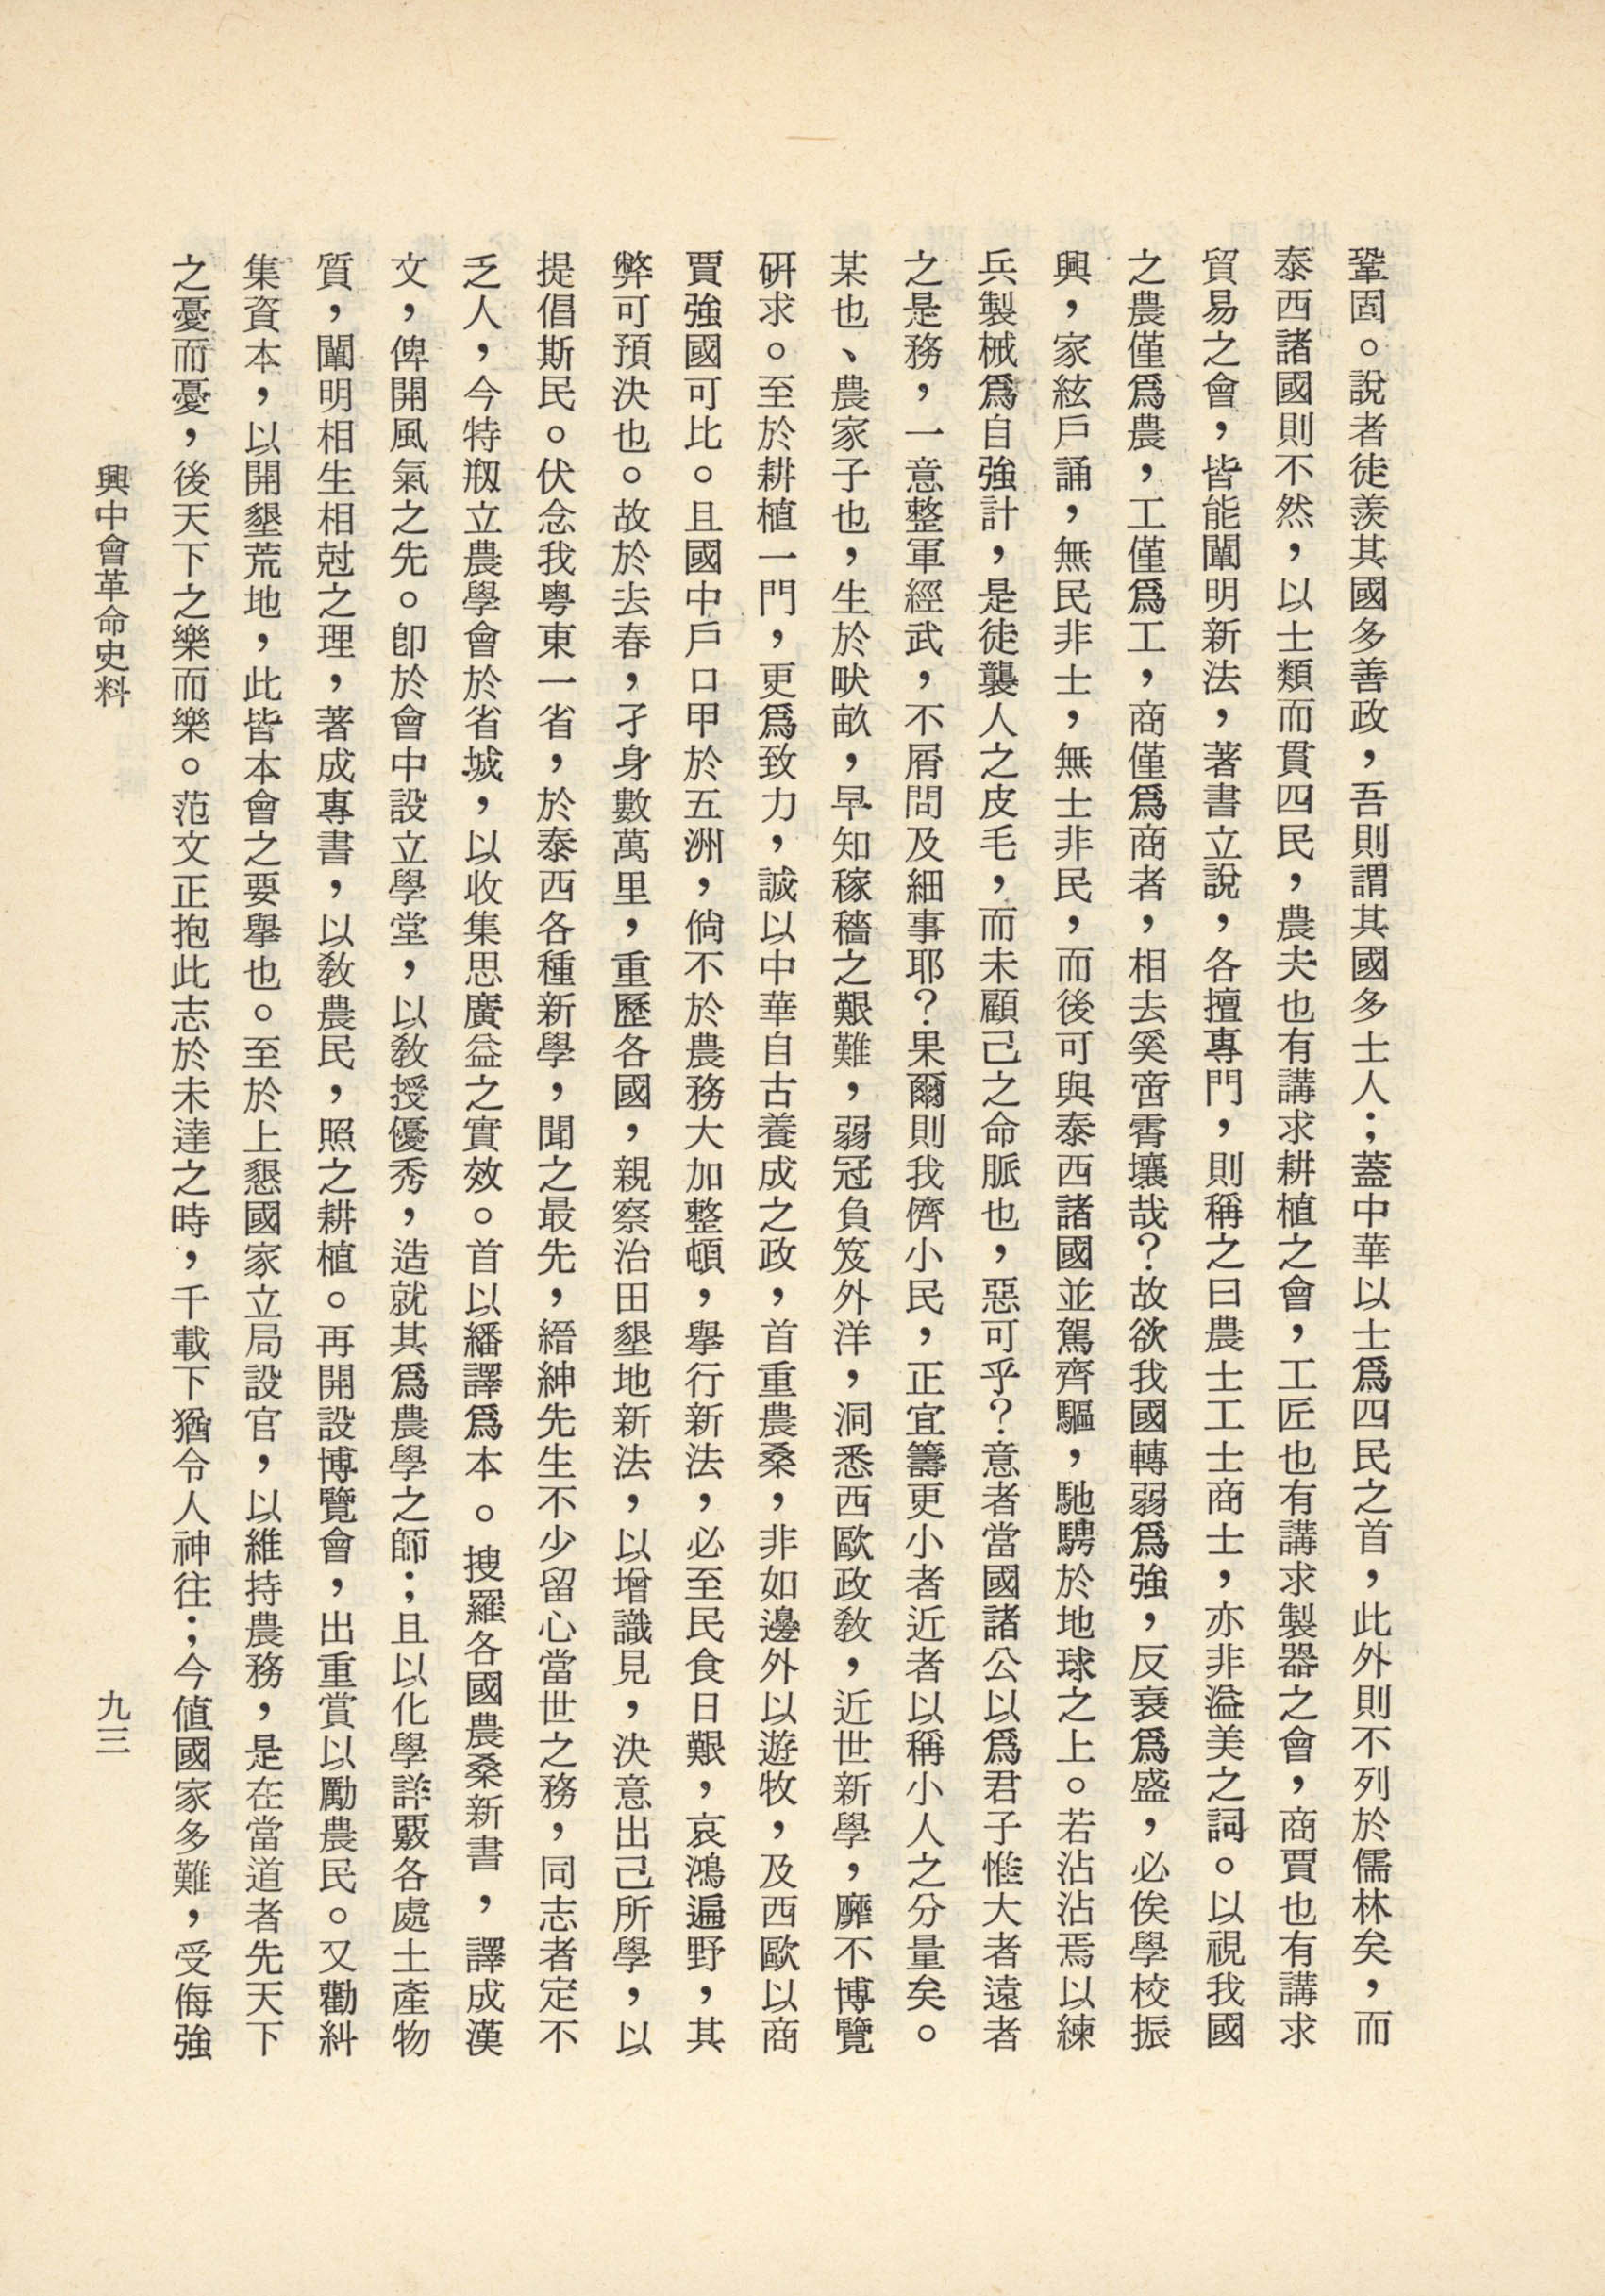 鞏固。說者徒羨其國多善政，吾則謂其國多士人；蓋中華以士爲四民之首，此外則不列於儒林矣，而
泰西諸國則不然，以士類而貫四民，農夫也有講求耕植之會，工匠也有講求製器之會，商賈也有講求
貿易之會，皆能闡明新法，著書立說，各擅專門，則稱之曰農士工士商士，亦非溢美之詞。以視我國
之農僅爲農，工僅爲工，商僅爲商者，相去奚啻霄壤哉？故欲我國轉弱爲強，反衰爲盛，必俟學校振
興，家絃戶誦，無民非士，無士非民，而後可與泰西諸國並駕齊驅，馳騁於地球之上。若沾沾焉以練
兵製械爲自強計，是徒襲人之皮毛，而未顧己之命脈也，惡可乎？意者當國諸公以爲君子惟大者遠者
之是務，一意整軍經武，不屑問及細事耶？果爾則我儕小民，正宜籌更小者近者以稱小人之分量矣。
某也、農家子也，生於畎畝，早知稼穡之艱難，弱冠負笈外洋，洞悉西歐政敎，近世新學，靡不博覽
硏求。至於耕植一門，更爲致力，誠以中華自古養成之政，首重農桑，非如邊外以遊牧，及西歐以商
賈強國可比。且國中戶口甲於五洲，倘不於農務大加整頓，擧行新法，必至民食日艱，哀鴻遍野，其
弊可預決也。故於去春，孑身數萬里，重歷各國，親察治田墾地新法，以增識見，決意出己所學，以
提倡斯民。伏念我粤東一省，於泰西各種新學，聞之最先，縉紳先生不少留心當世之務，同志者定不
乏人，今特剏立農學會於省城，以收集思廣益之實效。首以繙譯爲本。搜羅各國農桑新書，譯成漢
文，俾開風氣之先。卽於會中設立學堂，以敎授優秀，造就其爲農學之師；且以化學詳覈各處土產物
質，闡明相生相尅之理，著成專書，以敎農民，照之耕植。再開設博覽會，出重賞以勵農民。又勸糾
集資本，以開墾荒地，此皆本會之要擧也。至於上懇國家立局設官，以維持農務，是在當道者先天下
之憂而憂，後天下之樂而樂。范文正抱此志於未達之時，千載下猶令人神往；今値國家多難，受侮強
興中會革命史料
九三